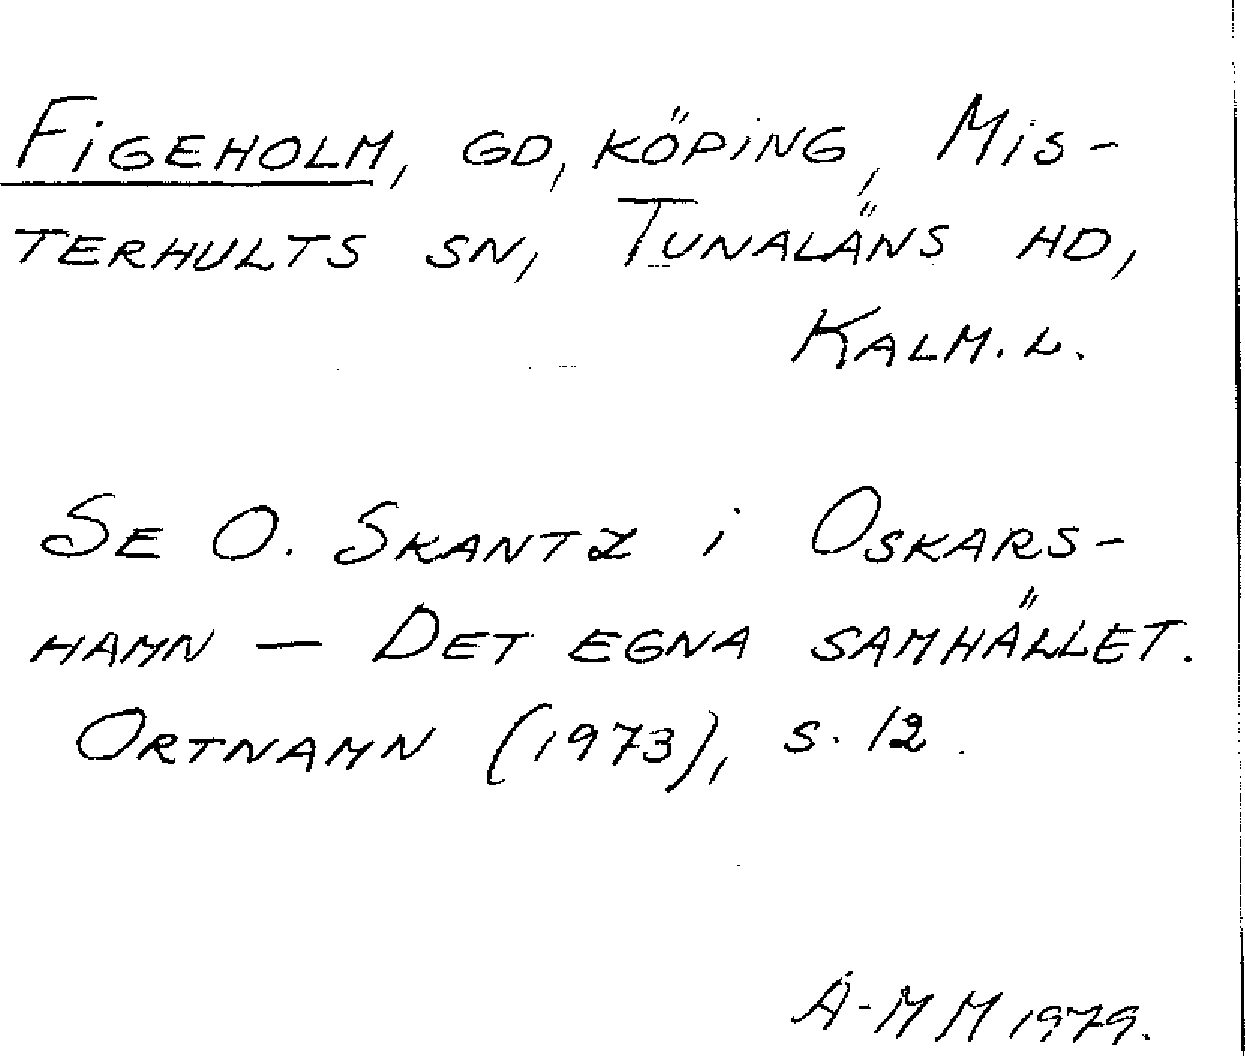 Figeholm, gd, köping, Mis-
terhults sn, Tunaläns hd,
Kalm. l.
Se O. Skantz i Oskars-
hamn — Det egna samhället.
Ortnamn (1973), s. 12.
A-MM 1979.